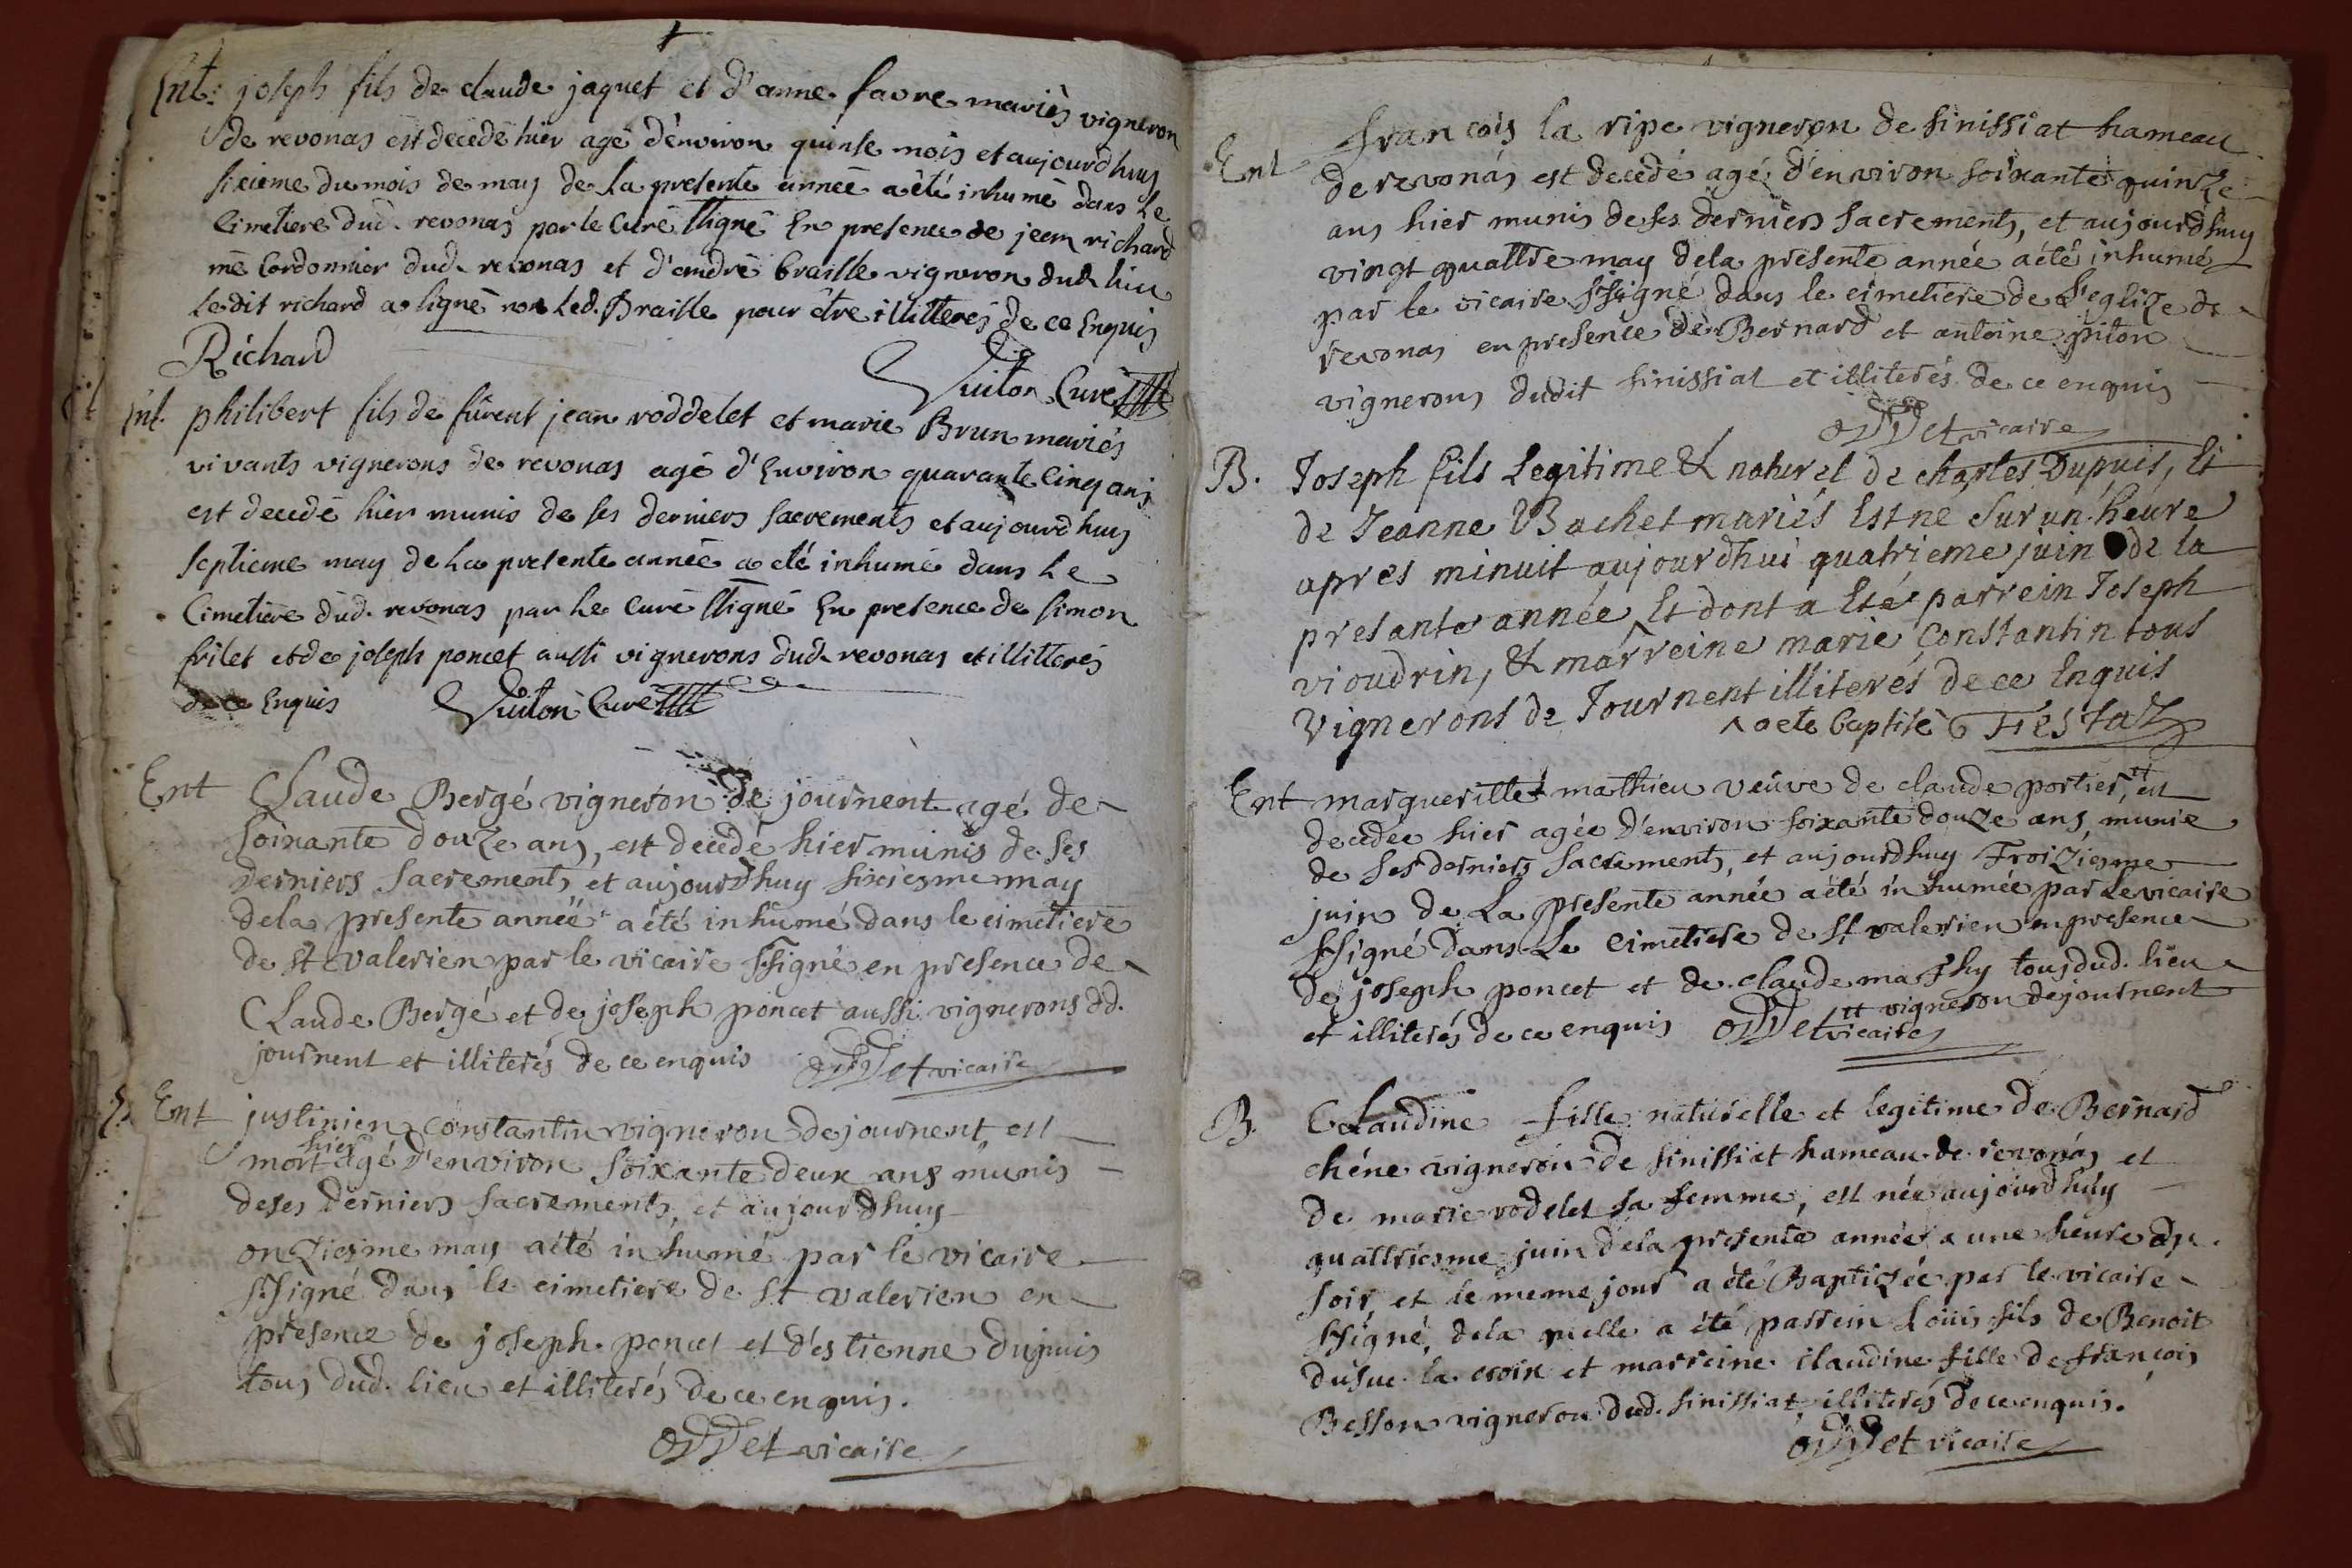 Ent: joseph fils de claude jaquet et d'anne favre mariés vigneron
de revonas est decedé hier agé d'environ quinse mois et aujourdhuy
sixieme du mois de may de la presente année a été inhumé dans le
Cimetiere dud. revonas par le Curé ssigné En presence de jean richard
me Cordonnier dud. revonas et d'andré braille vigneron dud. lieu
ledit richard a signé non led. Braille pour être illitterés de ce Enquis
Richard
Vuiton Curé
Ent. philibert fils de fûrent jean roddelet et marie Brun mariés
vivants vignerons de revonas agé d'Environ quarante Cinq ans
est decedé hier munis de ses derniers sacrements et aujourdhuy
septieme may de la presente année a été inhumé dans le
Cimetiere dud. revonas par le Curé ssigné En presence de simon
frilet et de joseph poncet aussi vignerons dud. revonas et illitterés
de ce Enquis Vuiton Curé
Ent Claude Bergé vigneron de journent agé de
soixante douze ans, est decedé hier munis de ses
derniers sacrements et aujourdhuy sixiesme may
dela presente année a été inhumé dans le cimetiere
de st valerien par le vicaire ssigné en presence de
Claude Bergé et de joseph poncet aussi vignerons dd.
journent et illiterés de ce enquis oddet vicaire
Ent justinien Constantin vigneron de journent est
hier
mort agé d'environ soixante deux ans munis
deses derniers sacrements, et aujourdhuy
onziesme may a été inhumé par le vicaire
ssigné dans le cimetiere de st valerien en
presence de joseph poncet et d'estienne dupuis
tous dud. lieu et illiterés de ce enquis.
oddet vicaire
francois la ripe vigneron de sinissiat hameau
Ent
de revonas est decedé agé d'environ soixante quinze
ans hier munis de ses derniers sacrements, et aujourdhuy
vingt quattre may dela presente année a été inhumé
par le vicaire ssigné dans le cimetiere de l'eglize de
revonas en presence de Bernard et antoine piton
vignerons dudit sinissiat et illiterés de ce enquis
oddet vicaire
B. Joseph fils Legitime & naturel de charles Dupuis, Et
de Jeanne Bachet mariés Est né sur un heure
apres minuit aujourdhui quatrieme juin de la
presante année ^ Et dont a Eté parrein Joseph
vioudrin, & marreine marie Constantin tous
Vignerons de Journent illiterés de ce Enquis
^ a ete baptisé Festaz
Ent margueritte mathieu veuve de claude portier, tt est
decedée hier agée d'environ soixante douze ans, munie
de ses derniers sacrements, et aujourdhuy Troiziesme
juin de La presente année a été inhumée par Le vicaire
ssigné dans Le cimetiere de st valerien en presence
de joseph poncet et de claude mathy tous dud. lieu
et illiterés de ce enquis oddet vicaire tt vigneron de journent
B. Claudine fille naturelle et legitime de Bernard
chéne vigneron de sinissiat hameau de revonas et
de marie rodelet sa femme, est née aujourdhuy
quattriesme juin dela presente année a une heure du
soir, et le meme jour a été Baptizée par le vicaire
ssigné, dela quelle a été parrein Louis fils de Benoit
dusuc la croix et marreine claudine fille de françois
Besson vigneron dud. sinissiat, illiterés de ce enquis.
oddet vicaire